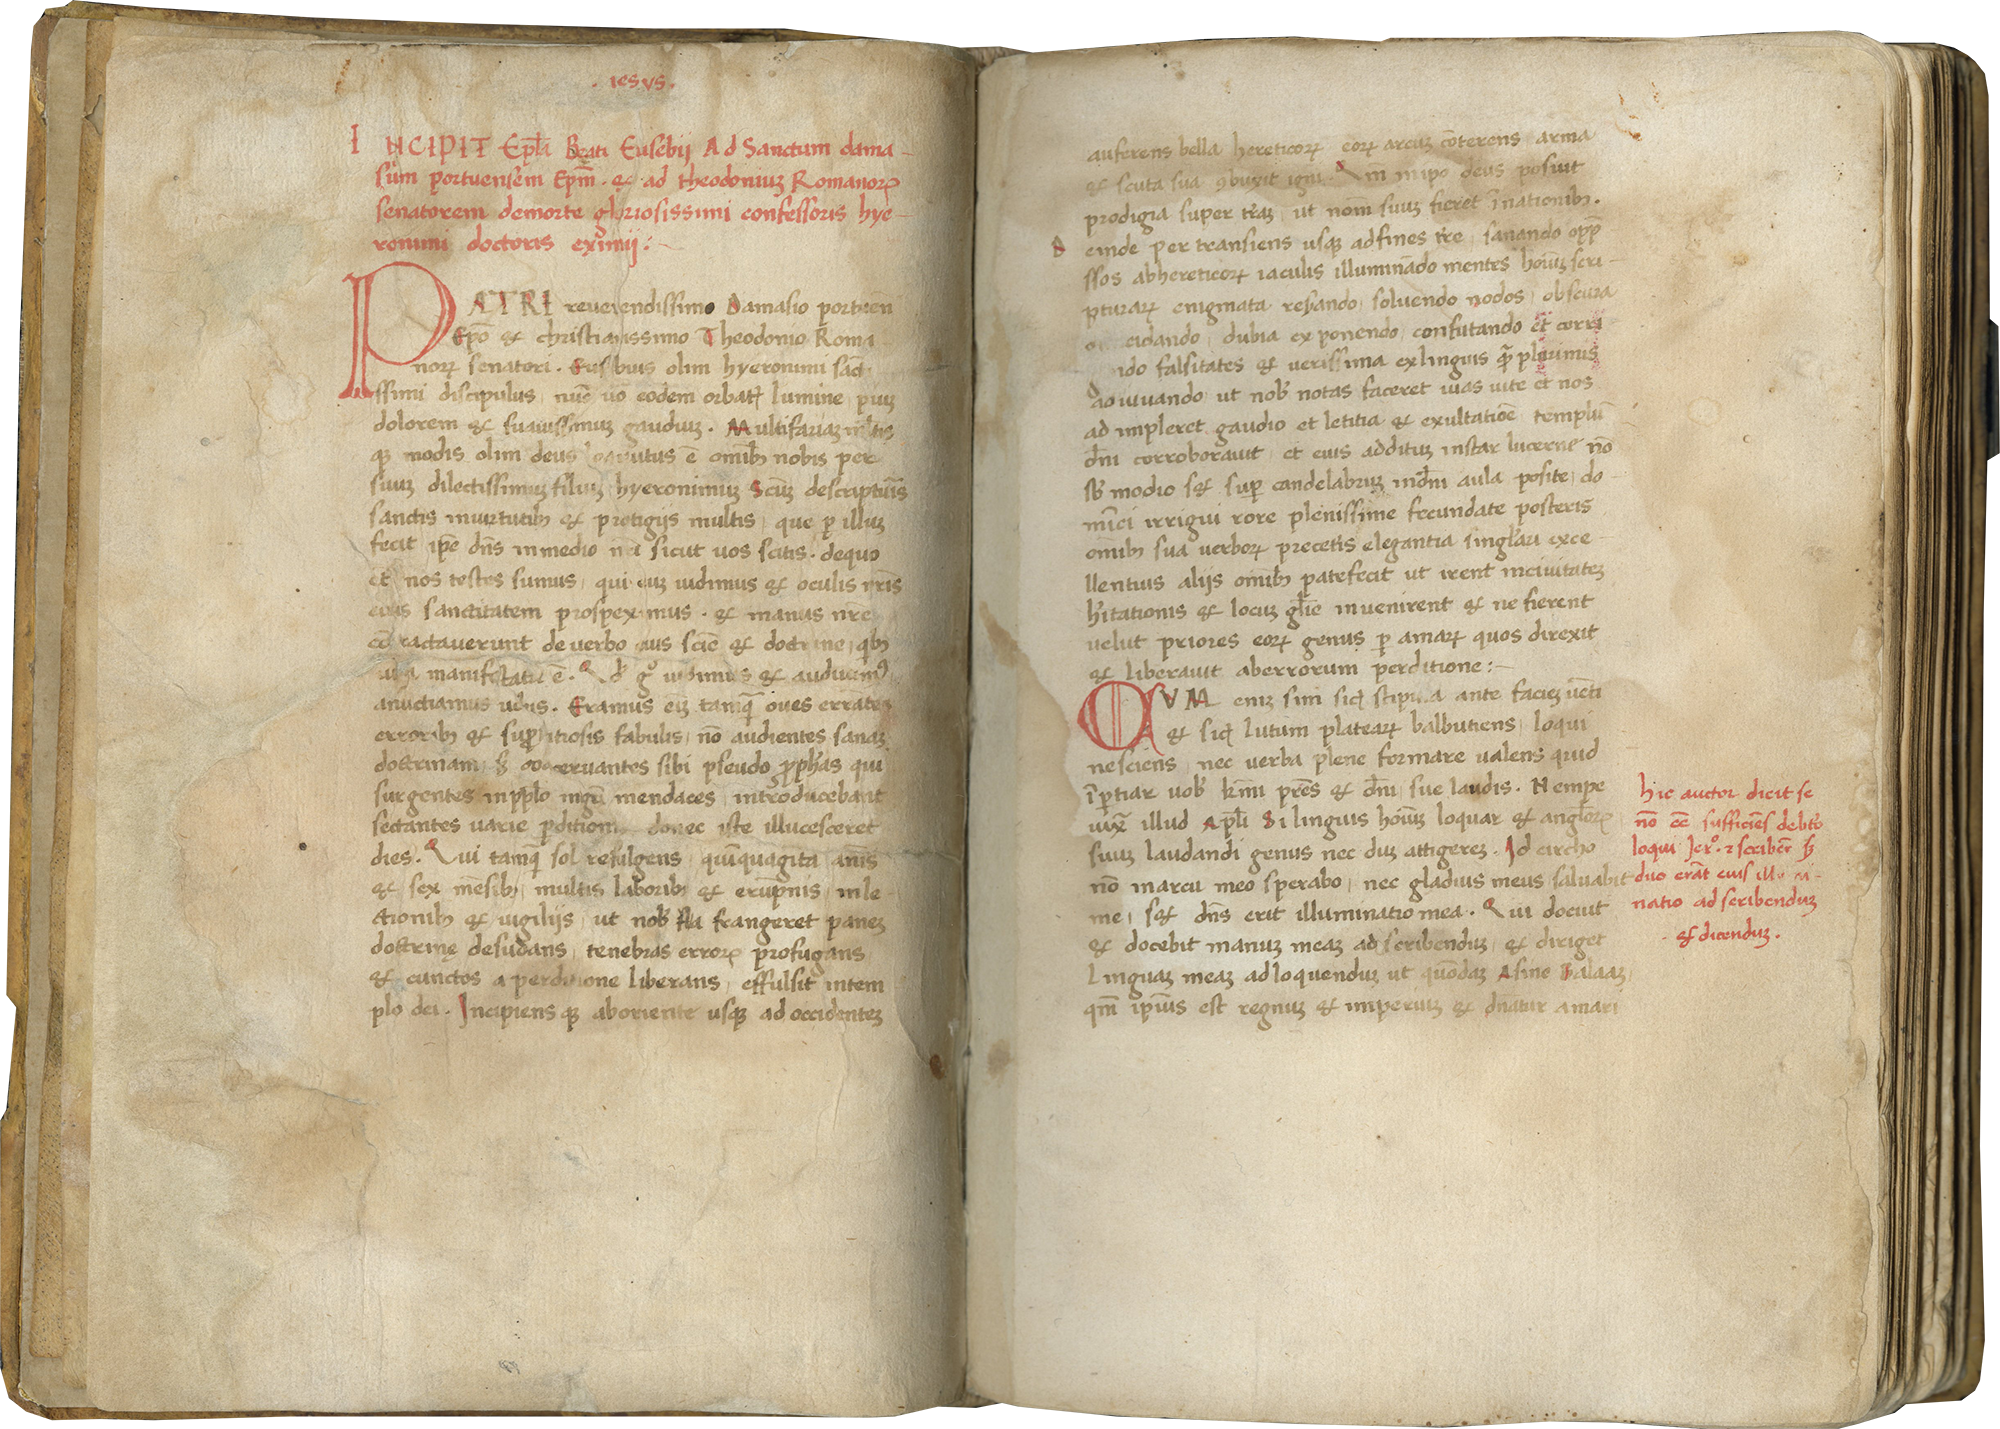 . iesvs .
INCIPIT Epl̄a Beati Eusebij Ad Sanctum dama-
sum portuensem Epm̄ . & ad theodoniuʒ Romanoꝝ
senatorem demorte gloriosissimi confessoris hye-
ronimi doctoris eximij :~
PATRI reverendissimo Damasio portuen̄
Ep̄o & christianissimo Theodonio Roma
noꝝ senatori . Eusebius olim hyeronimi sācti
ssimi discipulus nūc ūo eodem orbatꝰ lumine piuʒ
dolorem & suauissimuʒ gaudiuʒ . Multifariaʒ multis
qʒ modis olim deus locutus ē omībꝫ nobis per
suuʒ dilectissimuʒ filiuʒ hyeronimuʒ Scūʒ descripturis
sanctis inuirtutibꝫ & protigijs multis que ꝑ illuʒ
fecit ip̄e dn̄s inmedio nr̄i sicut uos scitis . dequo
et nos testes sumus qui cuʒ uidimus & oculis nr̄is
eius sanctitatem prospeximus . & manus nr̄e
cōtractauerunt deuerbo eius sciē & doctrine qbꝫ
uita manifestata ē . Qd̄ gͦ uidimus & audiuimꝰ
anuctiamus uobis . Eramus eīʒ tamqꝫ oues errātes
erroribꝫ & suꝑstitiosis fabulis nō audientes sanaʒ
doctrinam sꝫ coaceruantes sibi pseudo ꝓphãs qui
surgentes inpp̄lo mgr̄i mendaces introducebant
sectantes uarie ꝑditionis donec iste illucesceret
dies . Qui tamqꝫ sol refulgens quīquagīta anīs
& sex mēsibꝫ multis laboribꝫ & erūpnis inle-
ctionibꝫ & uigilijs ut nobꝫ frangeret paneʒ
doctrinę desudans tenebras erroꝝ profugans
& cunctos a perditione liberans effulsit intem
plo dei . Incipiens qʒ aboriente usqʒ ad occidenteʒ
auferens bella hereticoꝝ eoꝝ arcuʒ cōterens arma
& scuta sua ꝯbuxit igni . Qm̄ inip̄o deus posuit
prodigia super trāʒ ut nom̄ suuʒ fieret īnationibꝫ .
Deinde per transiens usqʒ adfines tr̄e sanando opp̄
ssos abhereticoꝝ iaculis illuminādo mentes hoīuʒ scri-
pturaꝝ enigmata reserando soluendo nodos obscura
cidando dubia exponendo confutando et corri
ndo falsitates & uerissima exlinguis qꝫ plurimis
adiuuando ut nobꝫ notas faceret uias uite et nos
ad impleret gaudio et letitia & exultatiōe templū
dn̄i corroborauit et eius additūʒ instar lucerne nō
sbꝫ modio sꝫ suꝑ candelabruʒ indn̄i aula posite do-
mīci irrigui rore plenissime fecundate posteris
omībꝫ sua uerboꝝ precetis elegantia singlari exce-
llentius alijs omībꝫ patefecit ut irent inciuitateʒ
hītationis & locuʒ glīe inuenirent & ne fierent
uelut priores eoꝝ genus ꝑ amaꝝ quos direxit
& liberauit aberrorum perditione :~
QVM eniʒ sim sicꝫ stipula ante facieʒ uēti
& sicꝫ lutum plateaꝝ balbutiens loqui
nesciens nec uerba plene formare ualens quid
īꝑtiar uobꝫ km̄i prēs & dn̄i sue laudis . Nempe
iuxͣ illud Apl̄i Si linguis hoīuʒ loquar & angloꝝ
suuʒ laudandi genus nec duʒ attigereʒ . Id circho
nō inarcu meo sperabo nec gladius meus saluabit
me sꝫ dn̄s erit illuminatio mea . Qui docuit
& docebit manuʒ meaʒ ad scribenduʒ & diriget
Linguaʒ meaʒ adloquenduʒ ut quōdaʒ Asine Balaaʒ
qm̄ ip̄ius est regnuʒ & imperiuʒ & dnatur amari
hic auctor dicit se
nō eē sufficiēs debtō
loqui Jerͦ . ꝛ scribēr sꝫ
duo erāt eius illumi-
natio ad scribenduʒ
. & dicenduʒ .